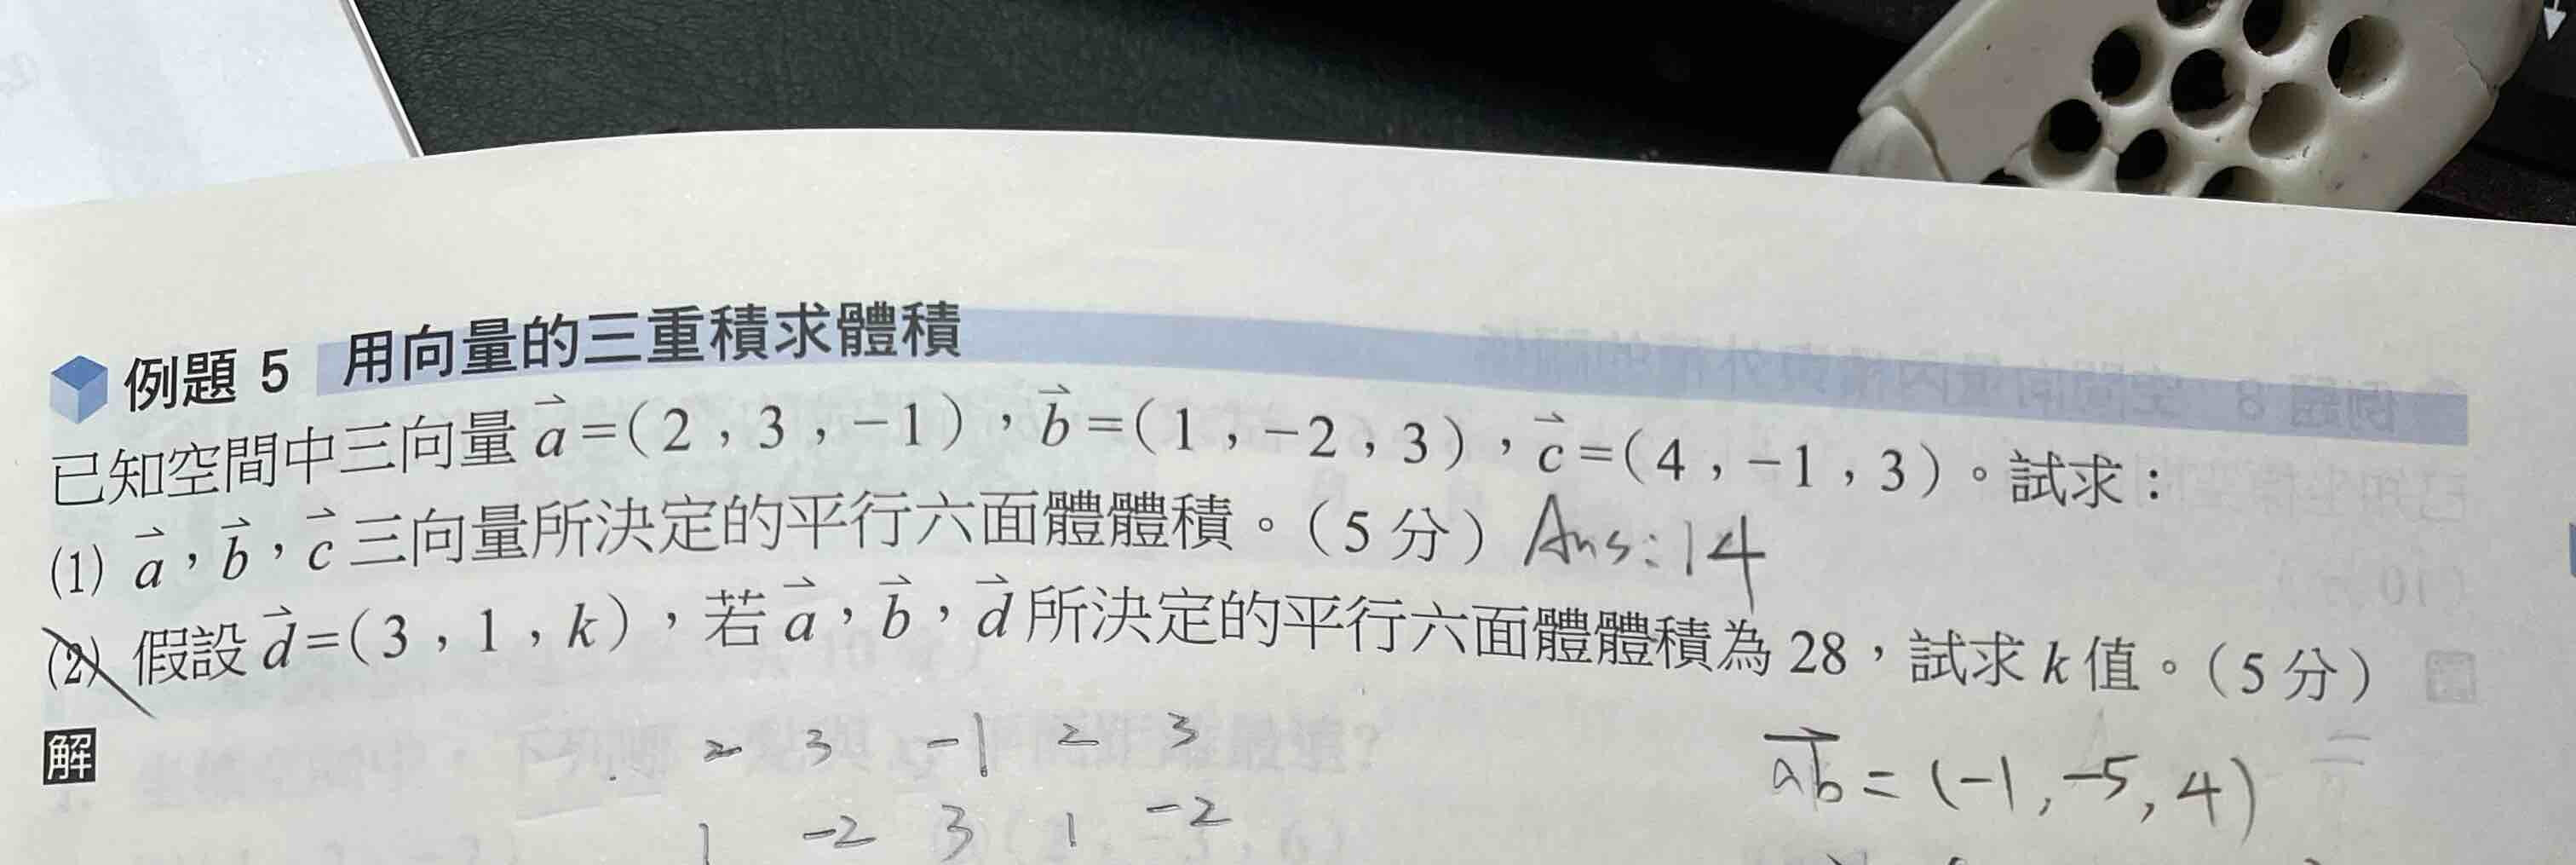 例題 5 用向量的三重積求體積
已知空間中三向量 a⃗=(2,3,-1),b⃗=(1,-2,3),c⃗=(4,-1,3)。試求:
(1) a⃗,b⃗,c⃗ 三向量所決定的平行六面體體積。(5 分) Ans:14
(2) 假設 d⃗=(3,1,k),若 a⃗,b⃗,d⃗ 所決定的平行六面體體積為 28,試求 k 值。(5 分)
解
2 3 -1 2 3
1 -2 3 1 -2
ab⃗ = (-1, -5, 4)